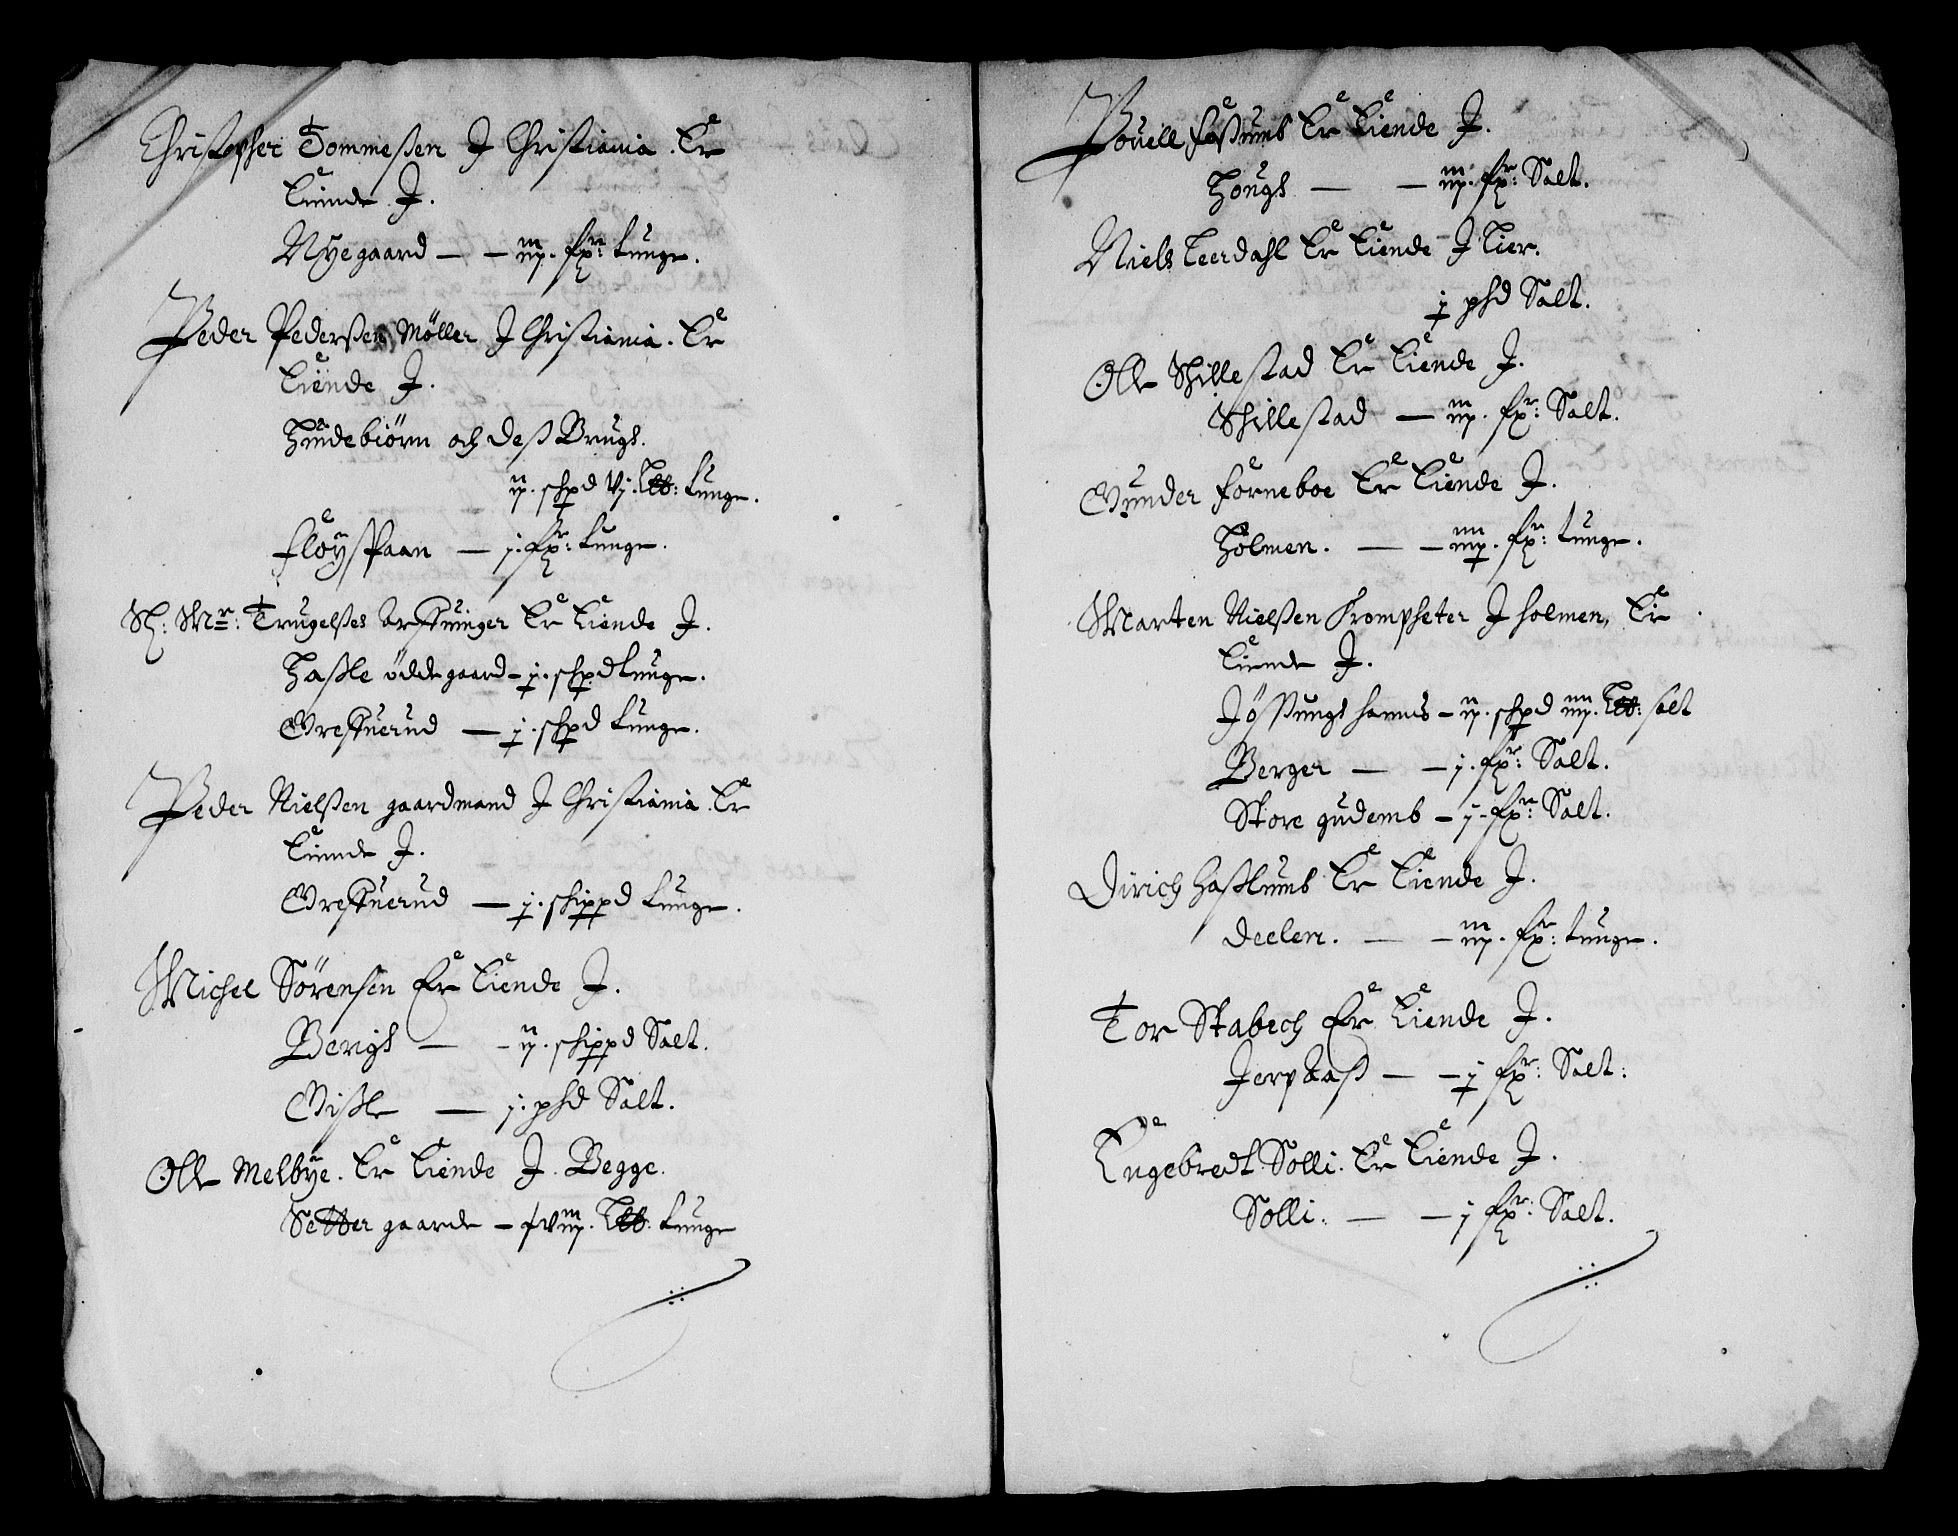 Christopher Tommeßen J Christiania. Er
Eiende J.
Nyegaard — — iij. fr: tunge.
Peder Pederßen Möller J Christiania. Er
Eiende J.
Hundebiörn och deß Brugh.
ij. schpd vj. Lb: tunge.
Flöyspaan — j. fr: tunge.
Sl: Mr: Trugelßes Arffuinger Er Eiende J.
Haßle ödde gaard — j. schpd tunge.
Greffuerud — j. schpd tunge.
Peder Nielßen gaardmand J Christiania. Er
Eiende J.
Greffuerud — j. schippd tunge.
Michel Sörensen Er Eiende J.
Bergh — — ij. schippd Salt.
Gißle — j. phd Salt.
Olle Melbye. Er Eiende J. Begge.
Setter gaarde — Lb: tunge
Pouell Foßumb Er Eiende J.
Hough — — iij. fr: Salt.
Niels Leerdahl Er Eiende J Lier.
j phd Salt.
Olle Skillestad Er Eiende J.
Skillestad — iij. fr: Salt.
Gunder Forneboe Er Eiende J.
Holmen. — — iiij. fr: tunge.
Marten Nielßen Trompheter J Holmen, Er
Eiende J.
Jößung hammes — ij. schpd iiij. Lb: salt
Berger — — j. fr: Salt.
Store gudemb — j. fr: Salt.
Dirich Haßlumb Er Eiende J.
Deelen. — — iij. fr: tunge.
Tor Stabech Er Eiende J.
Jerpaaß — — j fr: Salt:
Engebredt Solli. Er Eiende J.
Solli. — — j fr: Salt.